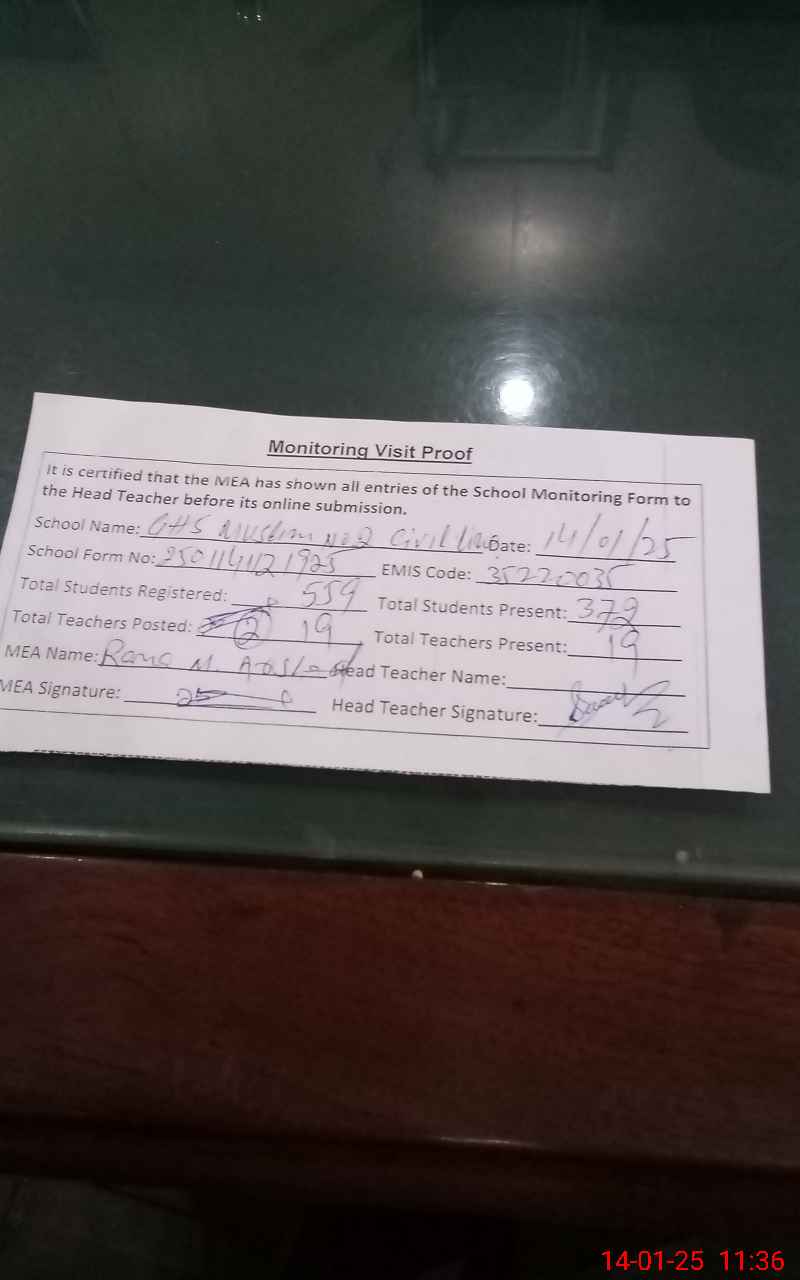 Monitoring Visit Proof
It is certified that the MEA has shown all entries of the School Monitoring Form to
the Head Teacher before its online submission.
School Name: GHS Muslim No 2 Civil Lin Date: 14/01/25
School Form No: EMIS Code: 35220035
Total Students Registered: 559 Total Students Present: 372
Total Teachers Posted: 19 Total Teachers Present: 19
MEA Name: Rana M. Head Teacher Name:
MEA Signature: Head Teacher Signature:
14-01-25 11:36